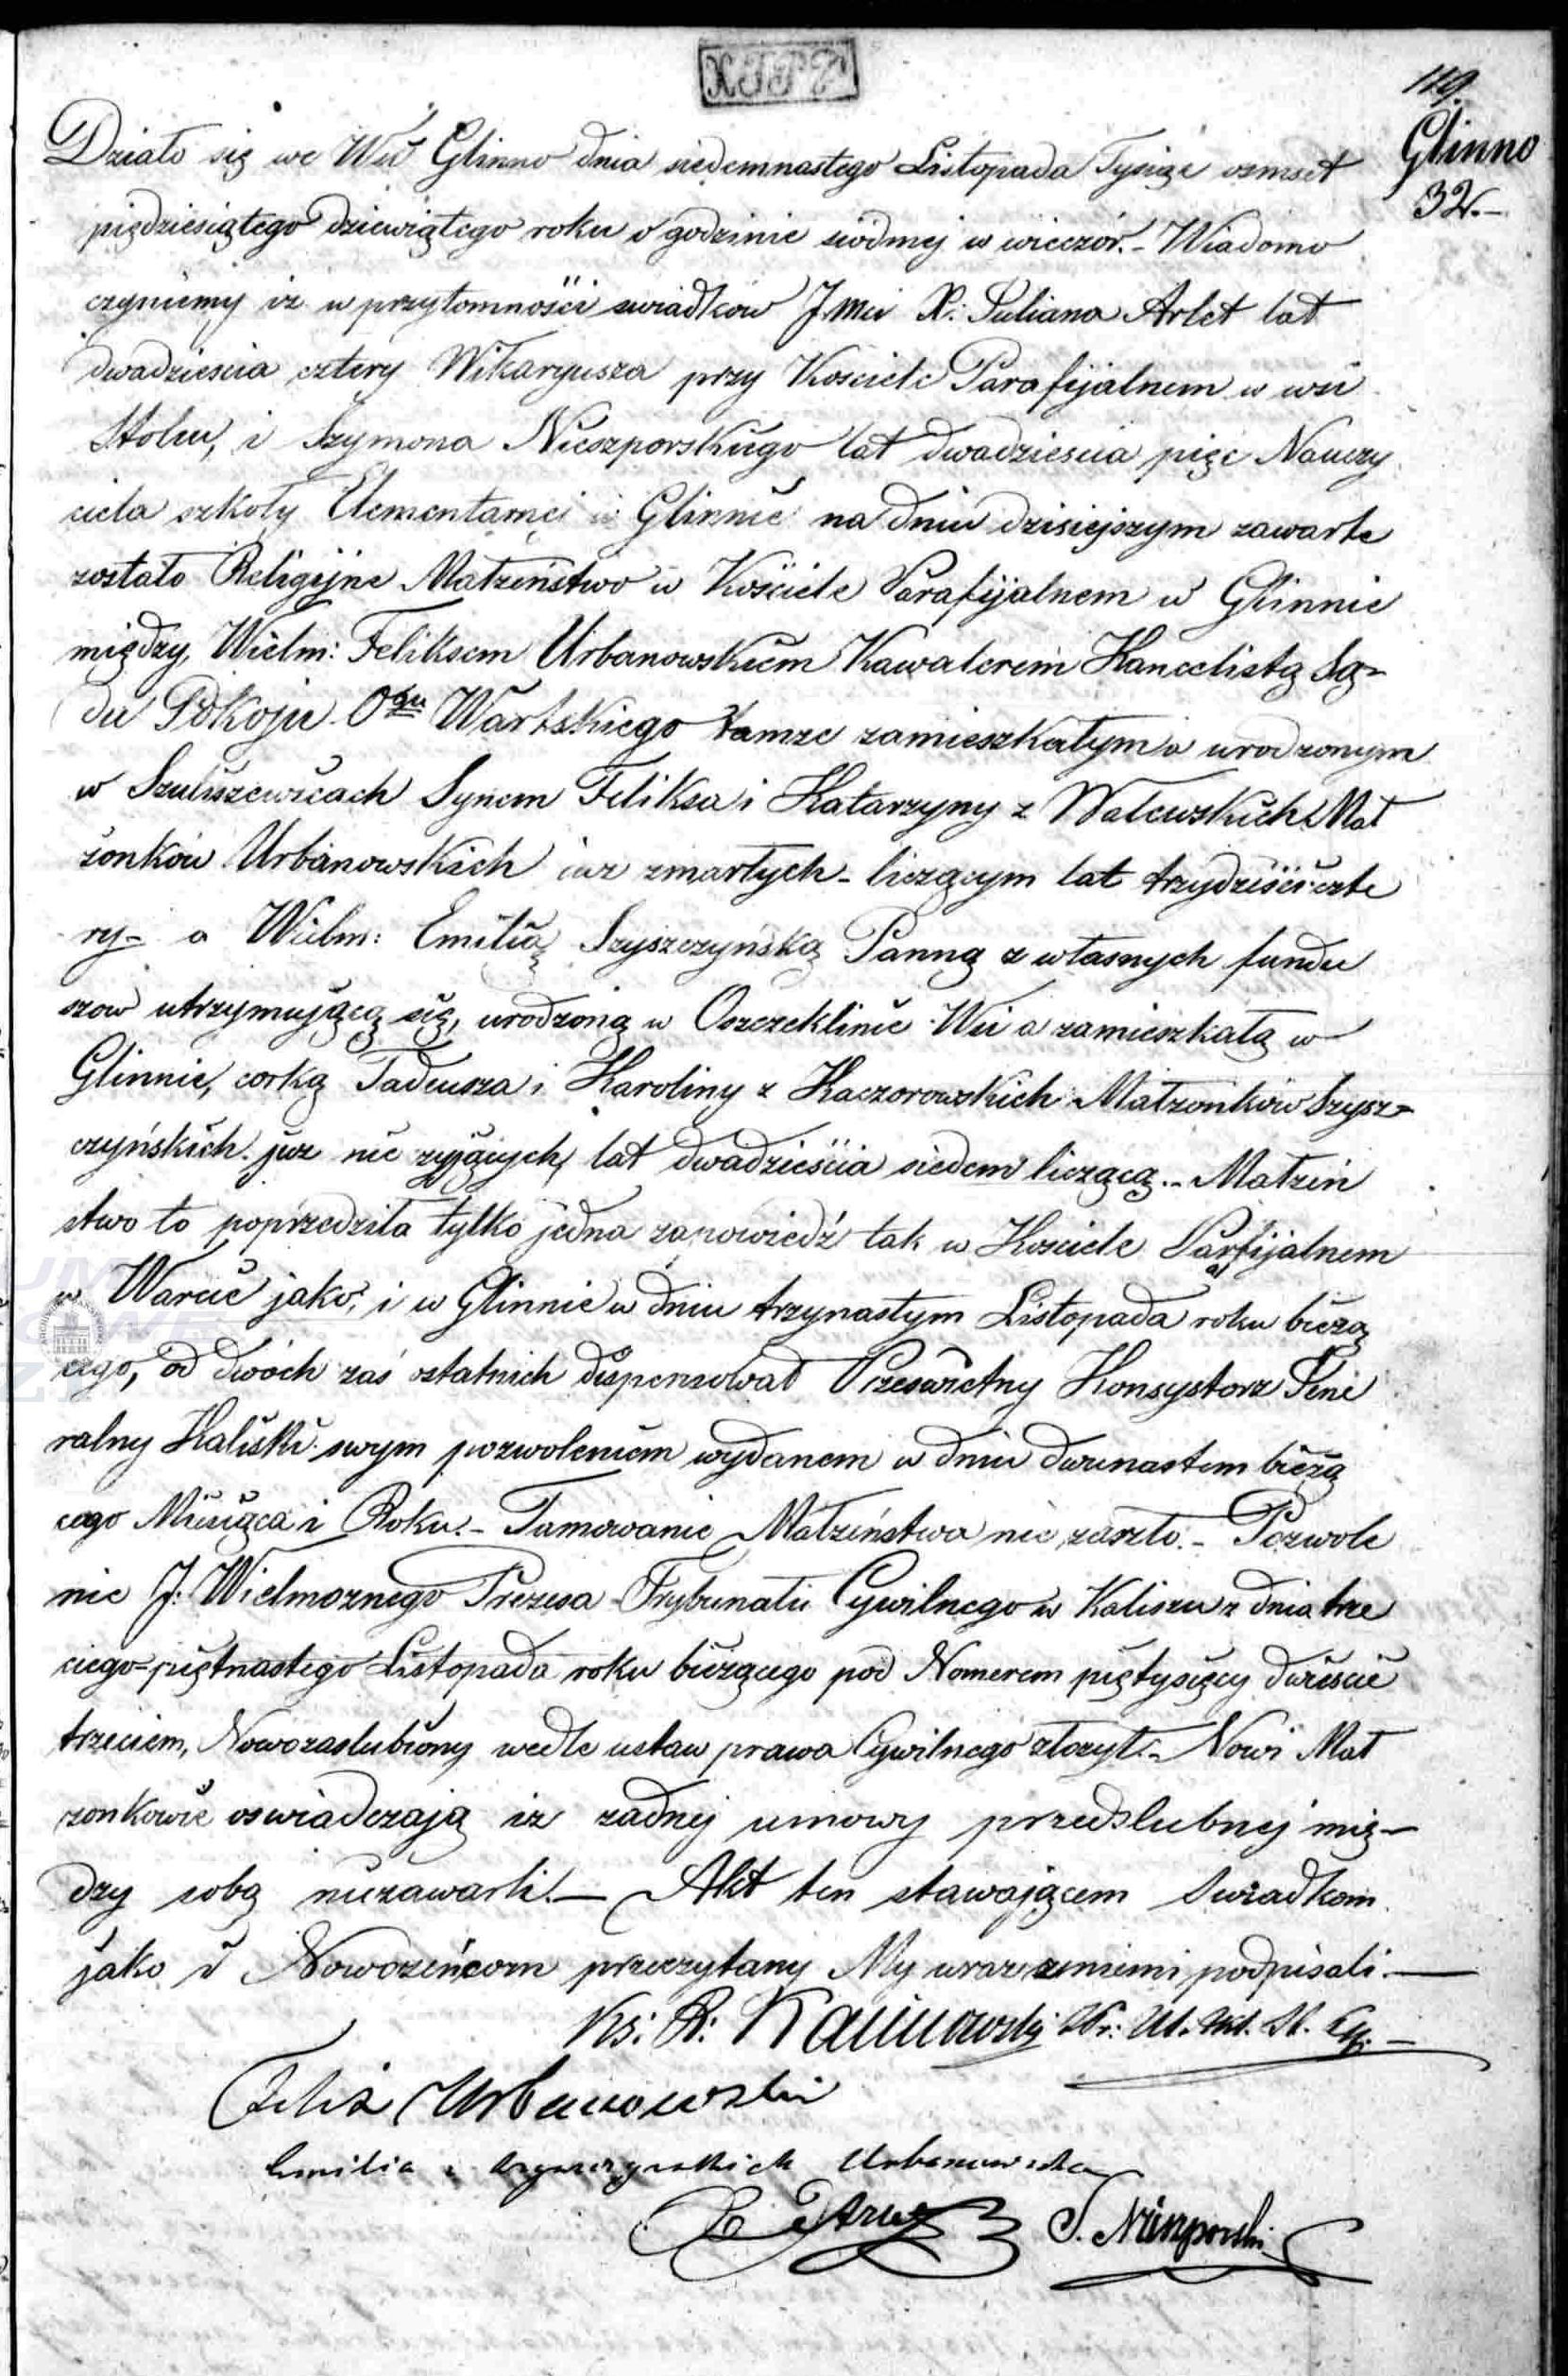 119.
Glinno
32.-
Działo się we Wsi Glinno dnia siedemnastego Listopada Tysiąc osmset
pięدziesiątego dziewiątego roku o godzinie siódmej w wieczór. - Wiadomo
czyniemy iż w przytomności świadków J. Mci X. Juliana Arlet lat
dwadzieścia cztery Wikaryusza przy Kościele Parafijalnem w wsi
i Szymona Nieszporskiego lat dwadzieścia pięć Nauczy
ciela szkoły Elementarnej w Glinnie na dniu dzisiejszym zawarte
zostało Religijne Małżeństwo w Kościele Parafijalnem w Glinnie
między Wielm: Feliksem Urbanowskiem Kawalerem Kancelistą Są-
du Pokoju Ogu Wartskiego tamże zamieszkałym a urodzonym
w Szuliszewicach Synem Feliksa i Katarzyny z Walewskich Mał
żonków Urbanowskich już zmarłych - liczącym lat trzydzieści czte
ry - a Wielm: Emilią Szyszczyńską Panną z własnych fundu
szow utrzymującą się, urodzoną w Oszczeklinie Wsi a zamieszkałą w
Glinnie, corką Tadeusza i Karoliny z Kaczorowskich Małżonków Szysz-
czyńskich już nie żyjących, lat dwadzieścia siedem liczącą. - Małżeń
stwo to poprzedziła tylko jedna zapowiedź tak w Kościele Parafijalnem
w Warcie jako i w Glinnie w dniu trzynastym Listopada roku bieżą
cego, od dwóch zaś ostatnich dispensował Prześwietny Konsystorz Jene
ralny Kaliski swym pozwoleniem wydanem w dniu dwunastem bieżą
cego Miesiąca i Roku. - Tamowanie Małżeństwa nie zaszło. - Pozwole
nie J: Wielmożnego Prezesa Trybunału Cywilnego w Kaliszu z dnia trze
ciego = piętnastego Listopada roku bieżącego pod Nomerem pięćtysięcy dwieście
trzeciem, Nowozaslubiony wedle ustaw prawa Cywilnego złożył. - Nowi Mał
żonkowie oswiadczają iż żadnej umowy przedslubnej mię-
dzy sobą niezawarli. - Akt ten stawającem Świadkom
jako i Nowożeńcom przeczytany My wraz zniemi podpisali. -
Ks: R: Kalinowski
Felix Urbanowski
Emilia z Szyszczyńskich Urbanowska
S. Nieszporski